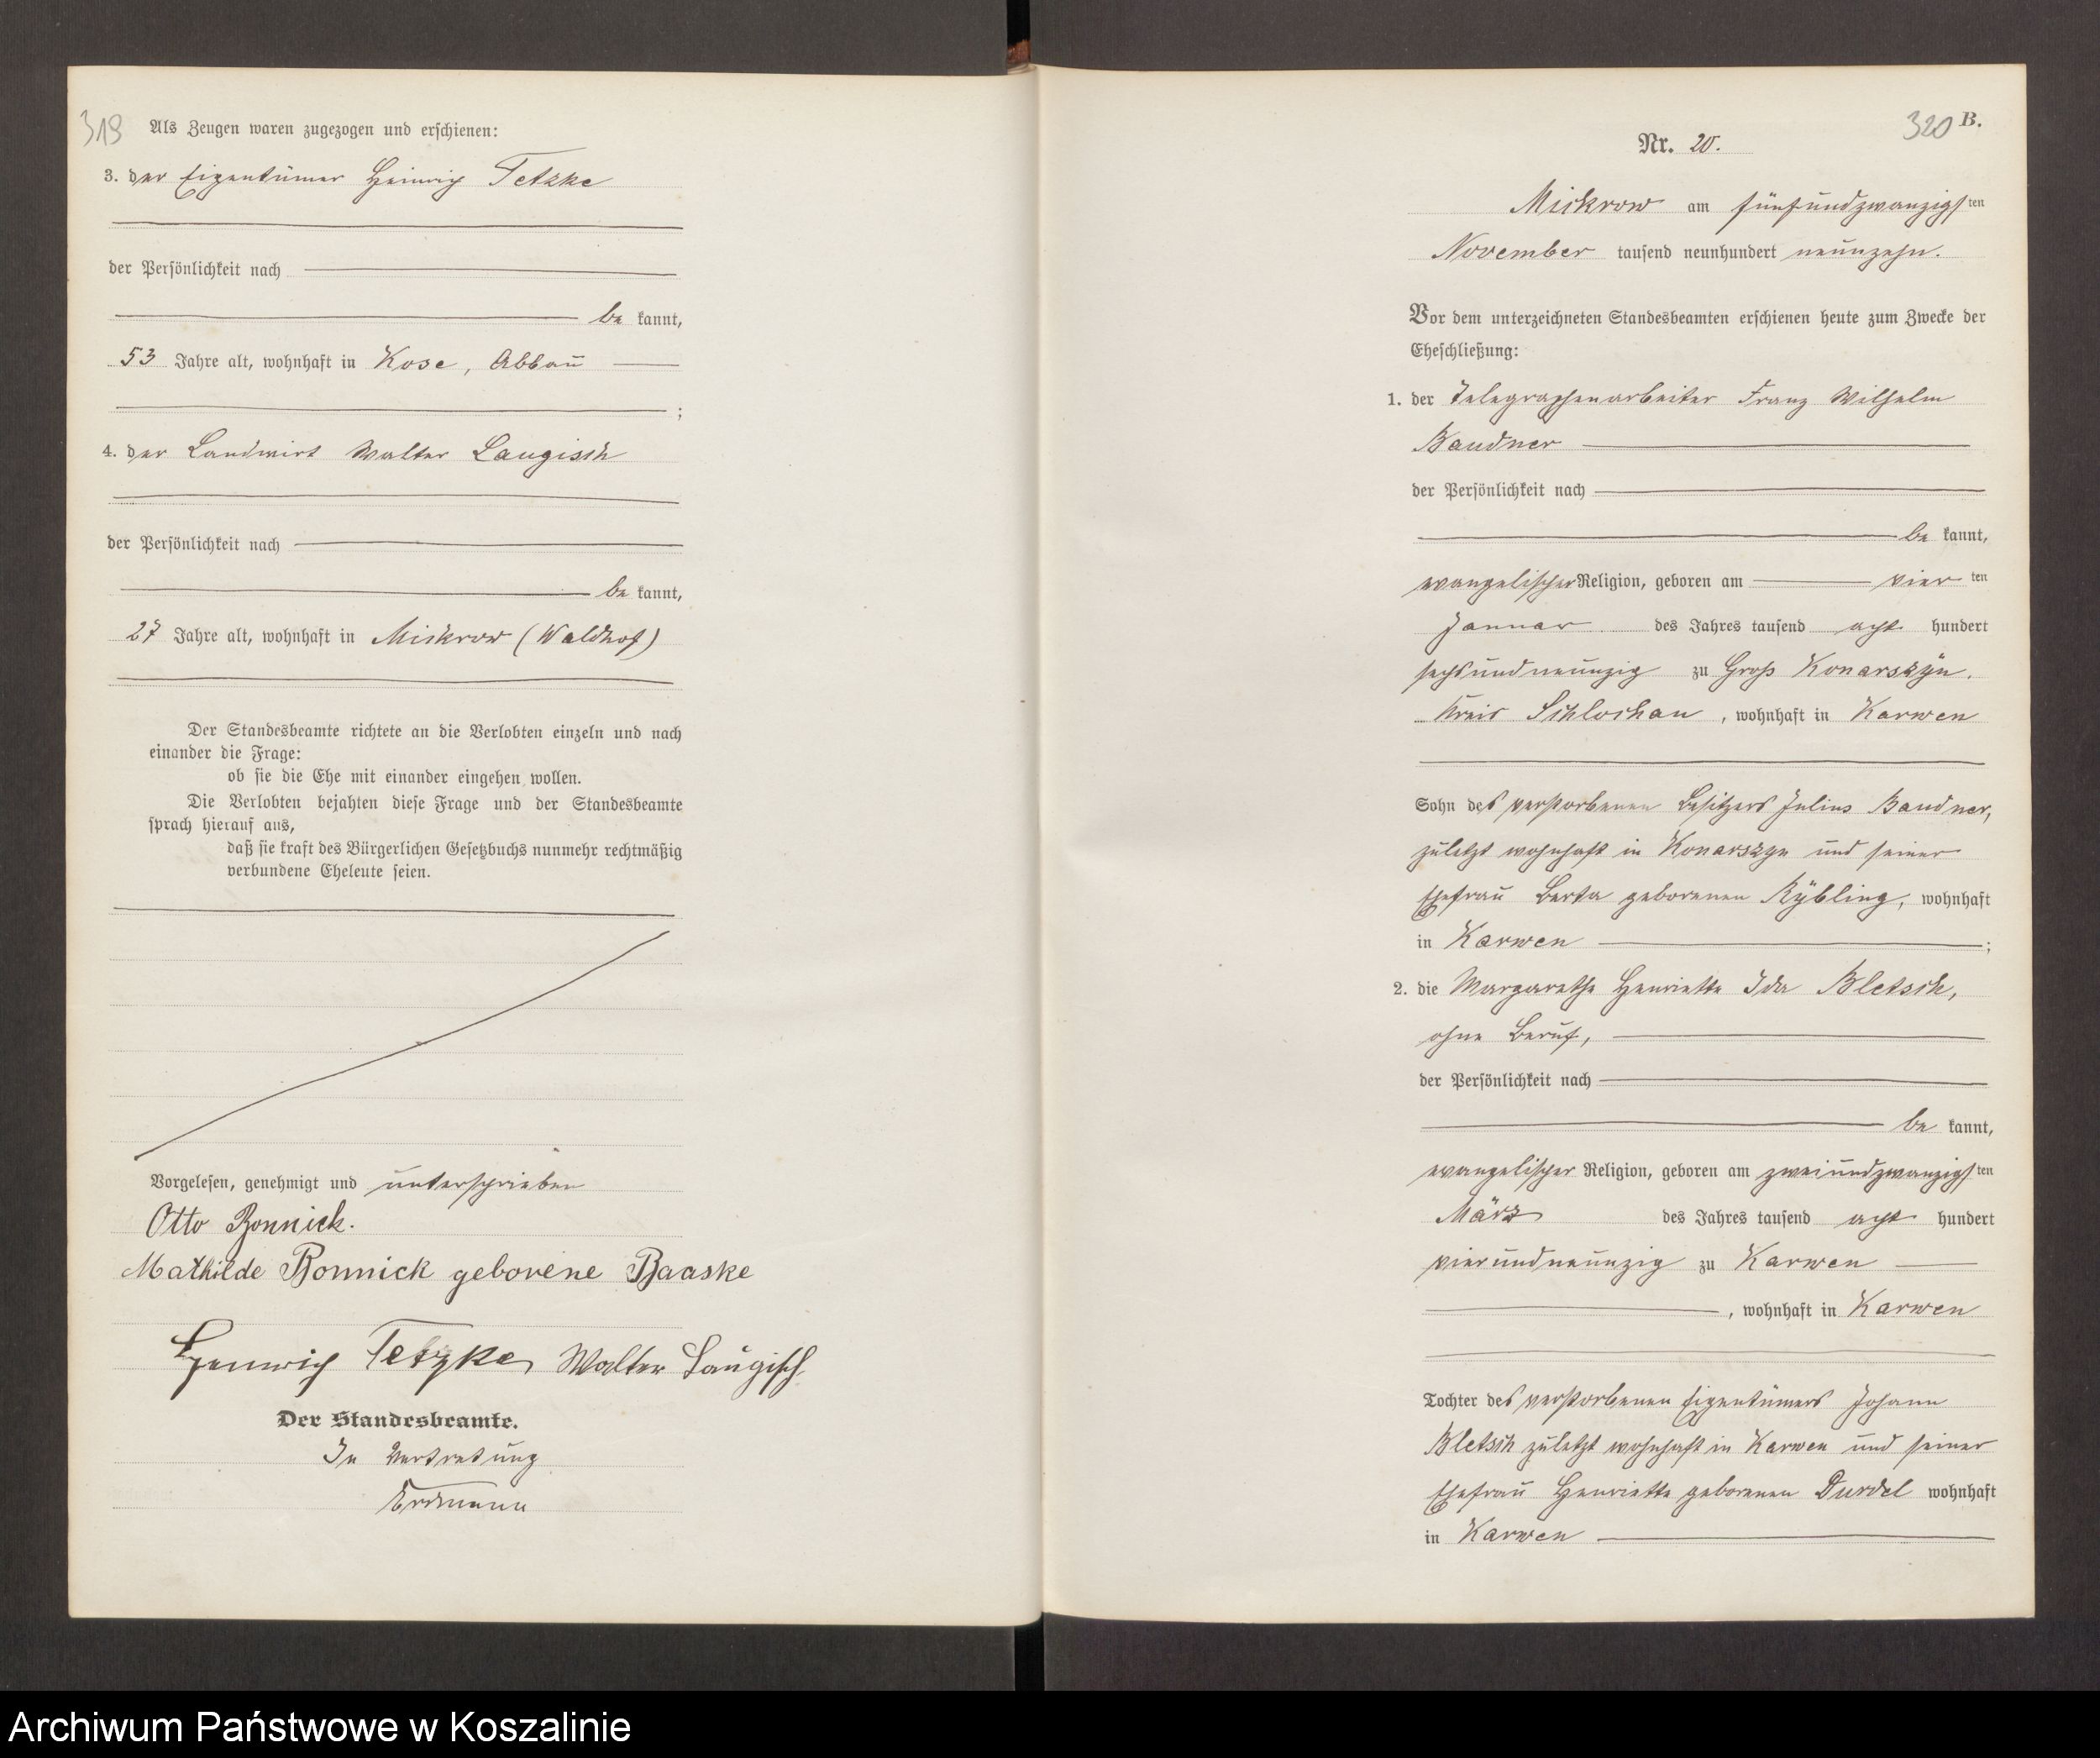 319
Als Zeugen waren zugezogen und erschienen:
3. der Eigentümer Heinrich Tetzke
der Persönlichkeit nach
be kannt,
53 Jahre alt, wohnhaft in Kose, Abbau
;
4. der Landwirt Walter Laugisch
der Persönlichkeit nach
be kannt,
27 Jahre alt, wohnhaft in Mickrow (Waldhof)
Der Standesbeamte richtete an die Verlobten einzeln und nach
einander die Frage:
ob sie die Ehe mit einander eingehen wollen.
Die Verlobten bejahten diese Frage und der Standesbeamte
sprach hierauf aus,
daß sie kraft des Bürgerlichen Gesetzbuchs nunmehr rechtmäßig
verbundene Eheleute seien.
Vorgelesen, genehmigt und unterschrieben
Otto Bonnick.
Mathilde Bonnick geborene Baaske
Heinrich Tetzke Walter Laugisch
Der Standesbeamte.
In Vertretung
Erdmann
320 B.
Nr. 20.
Mickrow am fünfundzwanzigsten
November tausend neunhundert neunzehn.
Vor dem unterzeichneten Standesbeamten erschienen heute zum Zwecke der
Eheschließung:
1. der Telegraphenarbeiter Franz Wilhelm
Baudner
der Persönlichkeit nach
be kannt,
evangelischer Religion, geboren am vier ten
Januar des Jahres tausend acht hundert
sechsundneunzig zu Groß Konarszyn,
Kreis Schlochau, wohnhaft in Karwen
Sohn des verstorbenen Besitzers Julius Baudner,
zuletzt wohnhaft in Konarszyn und seiner
Ehefrau Berta geborenen Rybling, wohnhaft
in Karwen ;
2. die Margarethe Henriette Ida Bletsch,
ohne Beruf,
der Persönlichkeit nach
be kannt,
evangelischer Religion, geboren am zweiundzwanzigsten
März des Jahres tausend acht hundert
vierundneunzig zu Karwen
, wohnhaft in Karwen
Tochter des verstorbenen Eigentümers Johann
Bletsch zuletzt wohnhaft in Karwen und seiner
Ehefrau Henriette geborenen Durdel wohnhaft
in Karwen
Archiwum Państwowe w Koszalinie